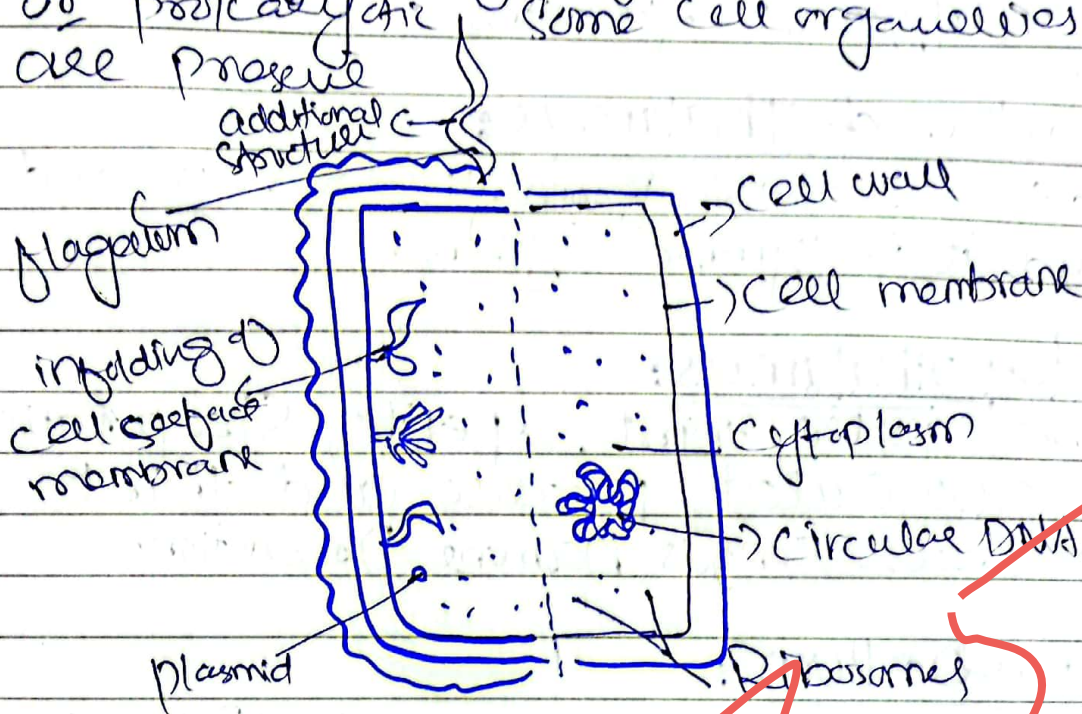 of prokaryotic some cell organelles
are present
additional
structure
flagellum
Cell wall
Cell membrane
infolding of
cell surface
membrane
Cytoplasm
Circular DNA
plasmid
Ribosomes